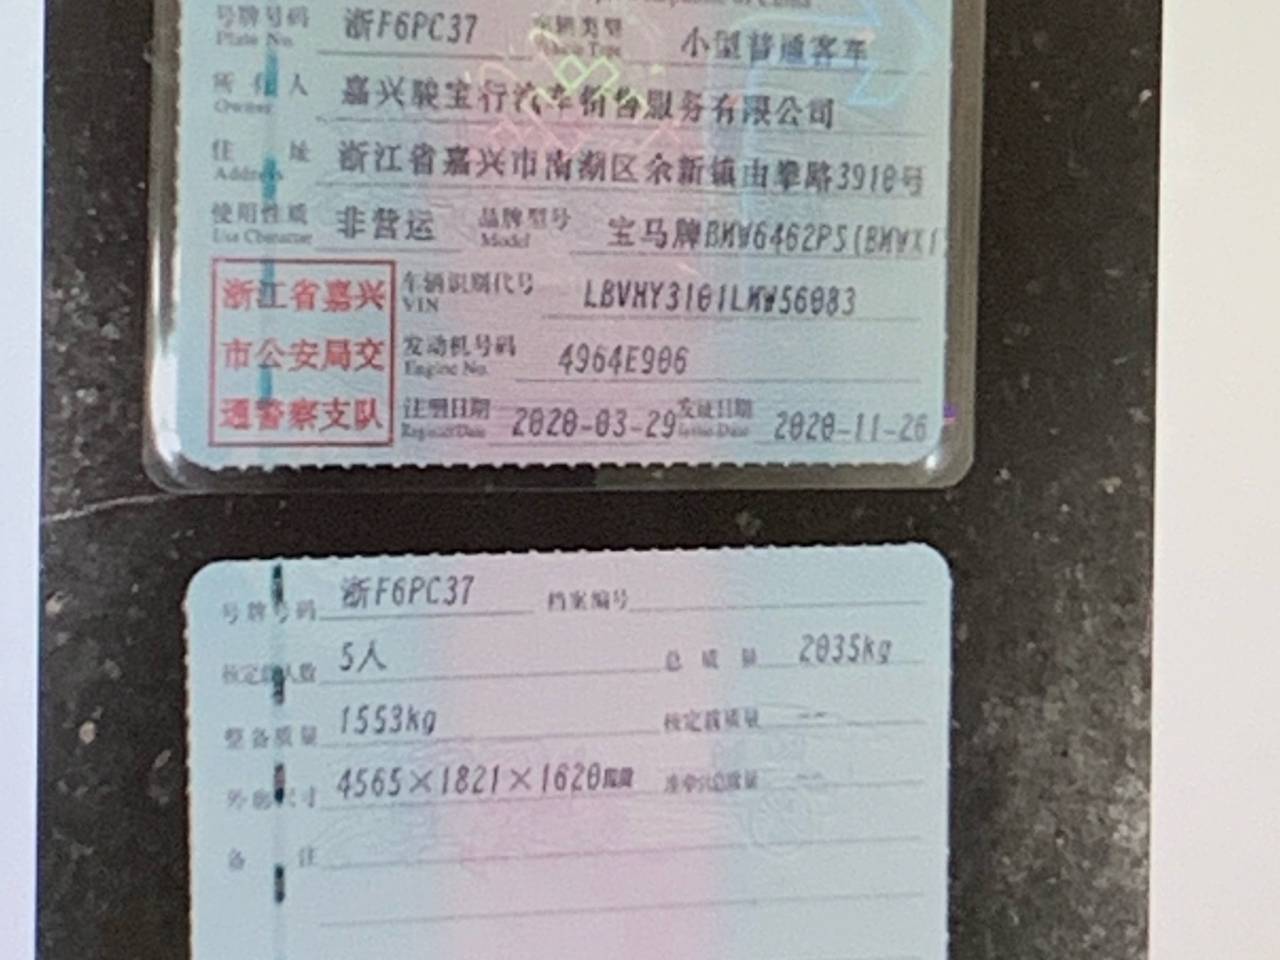 号牌号码 浙F6PC37 车辆类型 小型普通客车
Plate No. Vehicle Type
所有人 嘉兴骏宝行汽车销售服务有限公司
Owner
住 址 浙江省嘉兴市南湖区余新镇由拳路3910号
Address
使用性质 非营运 品牌型号 宝马牌BMW6462PS(BMWX1
Use Character Model
浙江省嘉兴
市公安局交
通警察支队
车辆识别代号 LBVHY3101LMW56083
VIN
发动机号码 4964E906
Engine No.
注册日期 2020-03-29 发证日期 2020-11-26
Register Date Issue Date
号牌号码 浙F6PC37 档案编号
核定载人数 5人 总 质 量 2035kg
整备质量 1553kg 核定载质量 --
外廓尺寸 4565×1821×1620mm 准牵引总质量 --
备 注